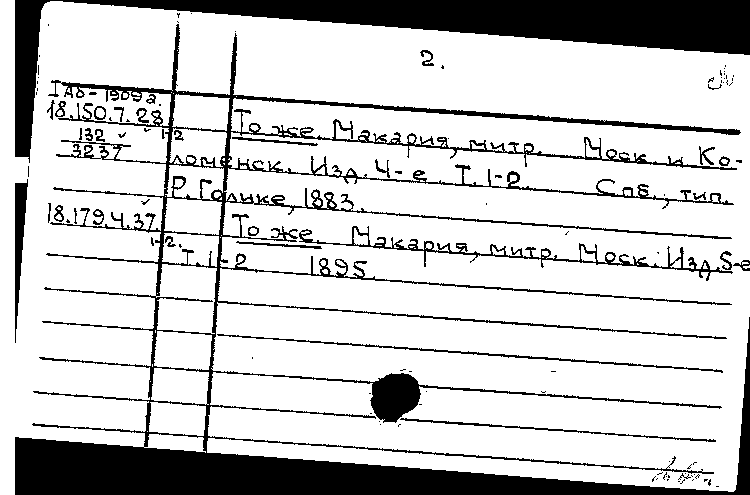 2.
I Аб-1909а.
18.150.7.28 То же. Макария, митр. Моск. и Ко-
1-2
132
3237 ломенск. Изд. 4-е Т. 1-2. Спб., тип.
Р. Голике, 1883.
18.179.4.37. То же. Макария, митр. Моск. Изд. 5-е
1-2.
Т. 1-2. 1895.